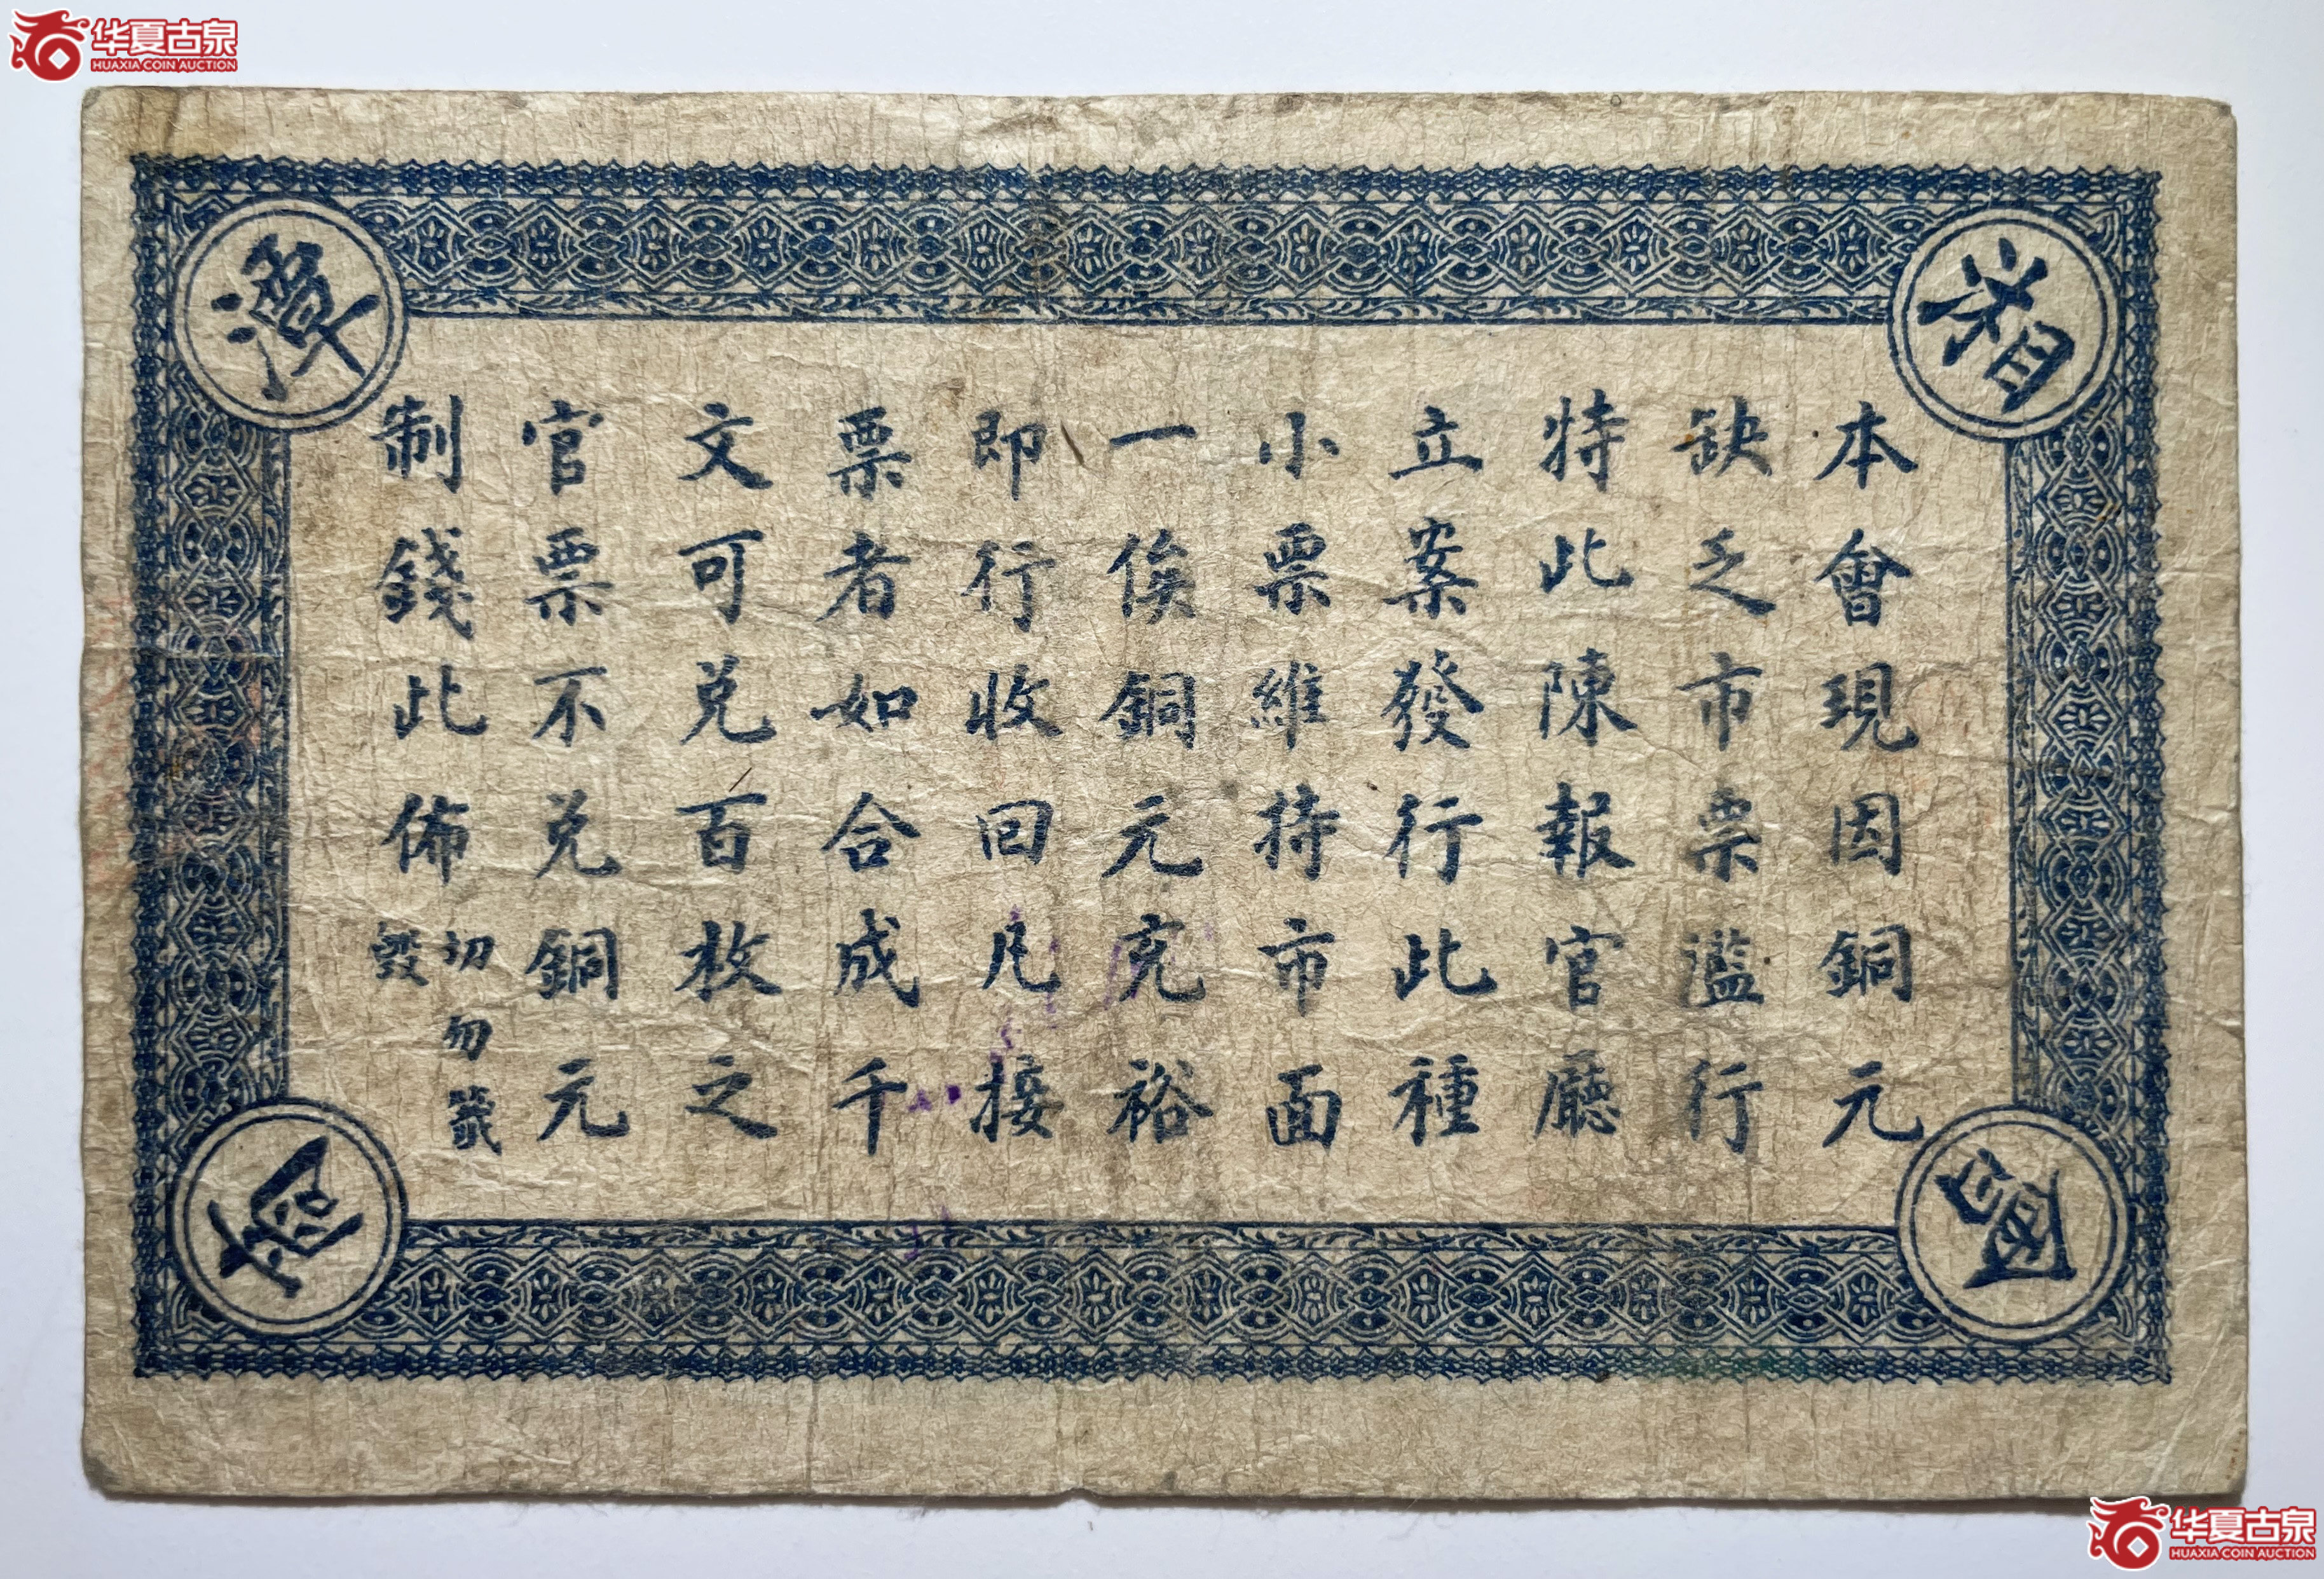 湘
潭
商
會
本會現因銅元
缺乏市票濫行
特此陳報官廳
立案發行此種
小票維持市面
一俟銅元充裕
即行收回凡接
票者如合成千
文可兌百枚之
官票不兌銅元
制錢此佈
切勿籤
毀
华夏古泉
HUAXIA COIN AUCTION
华夏古泉
HUAXIA COIN AUCTION